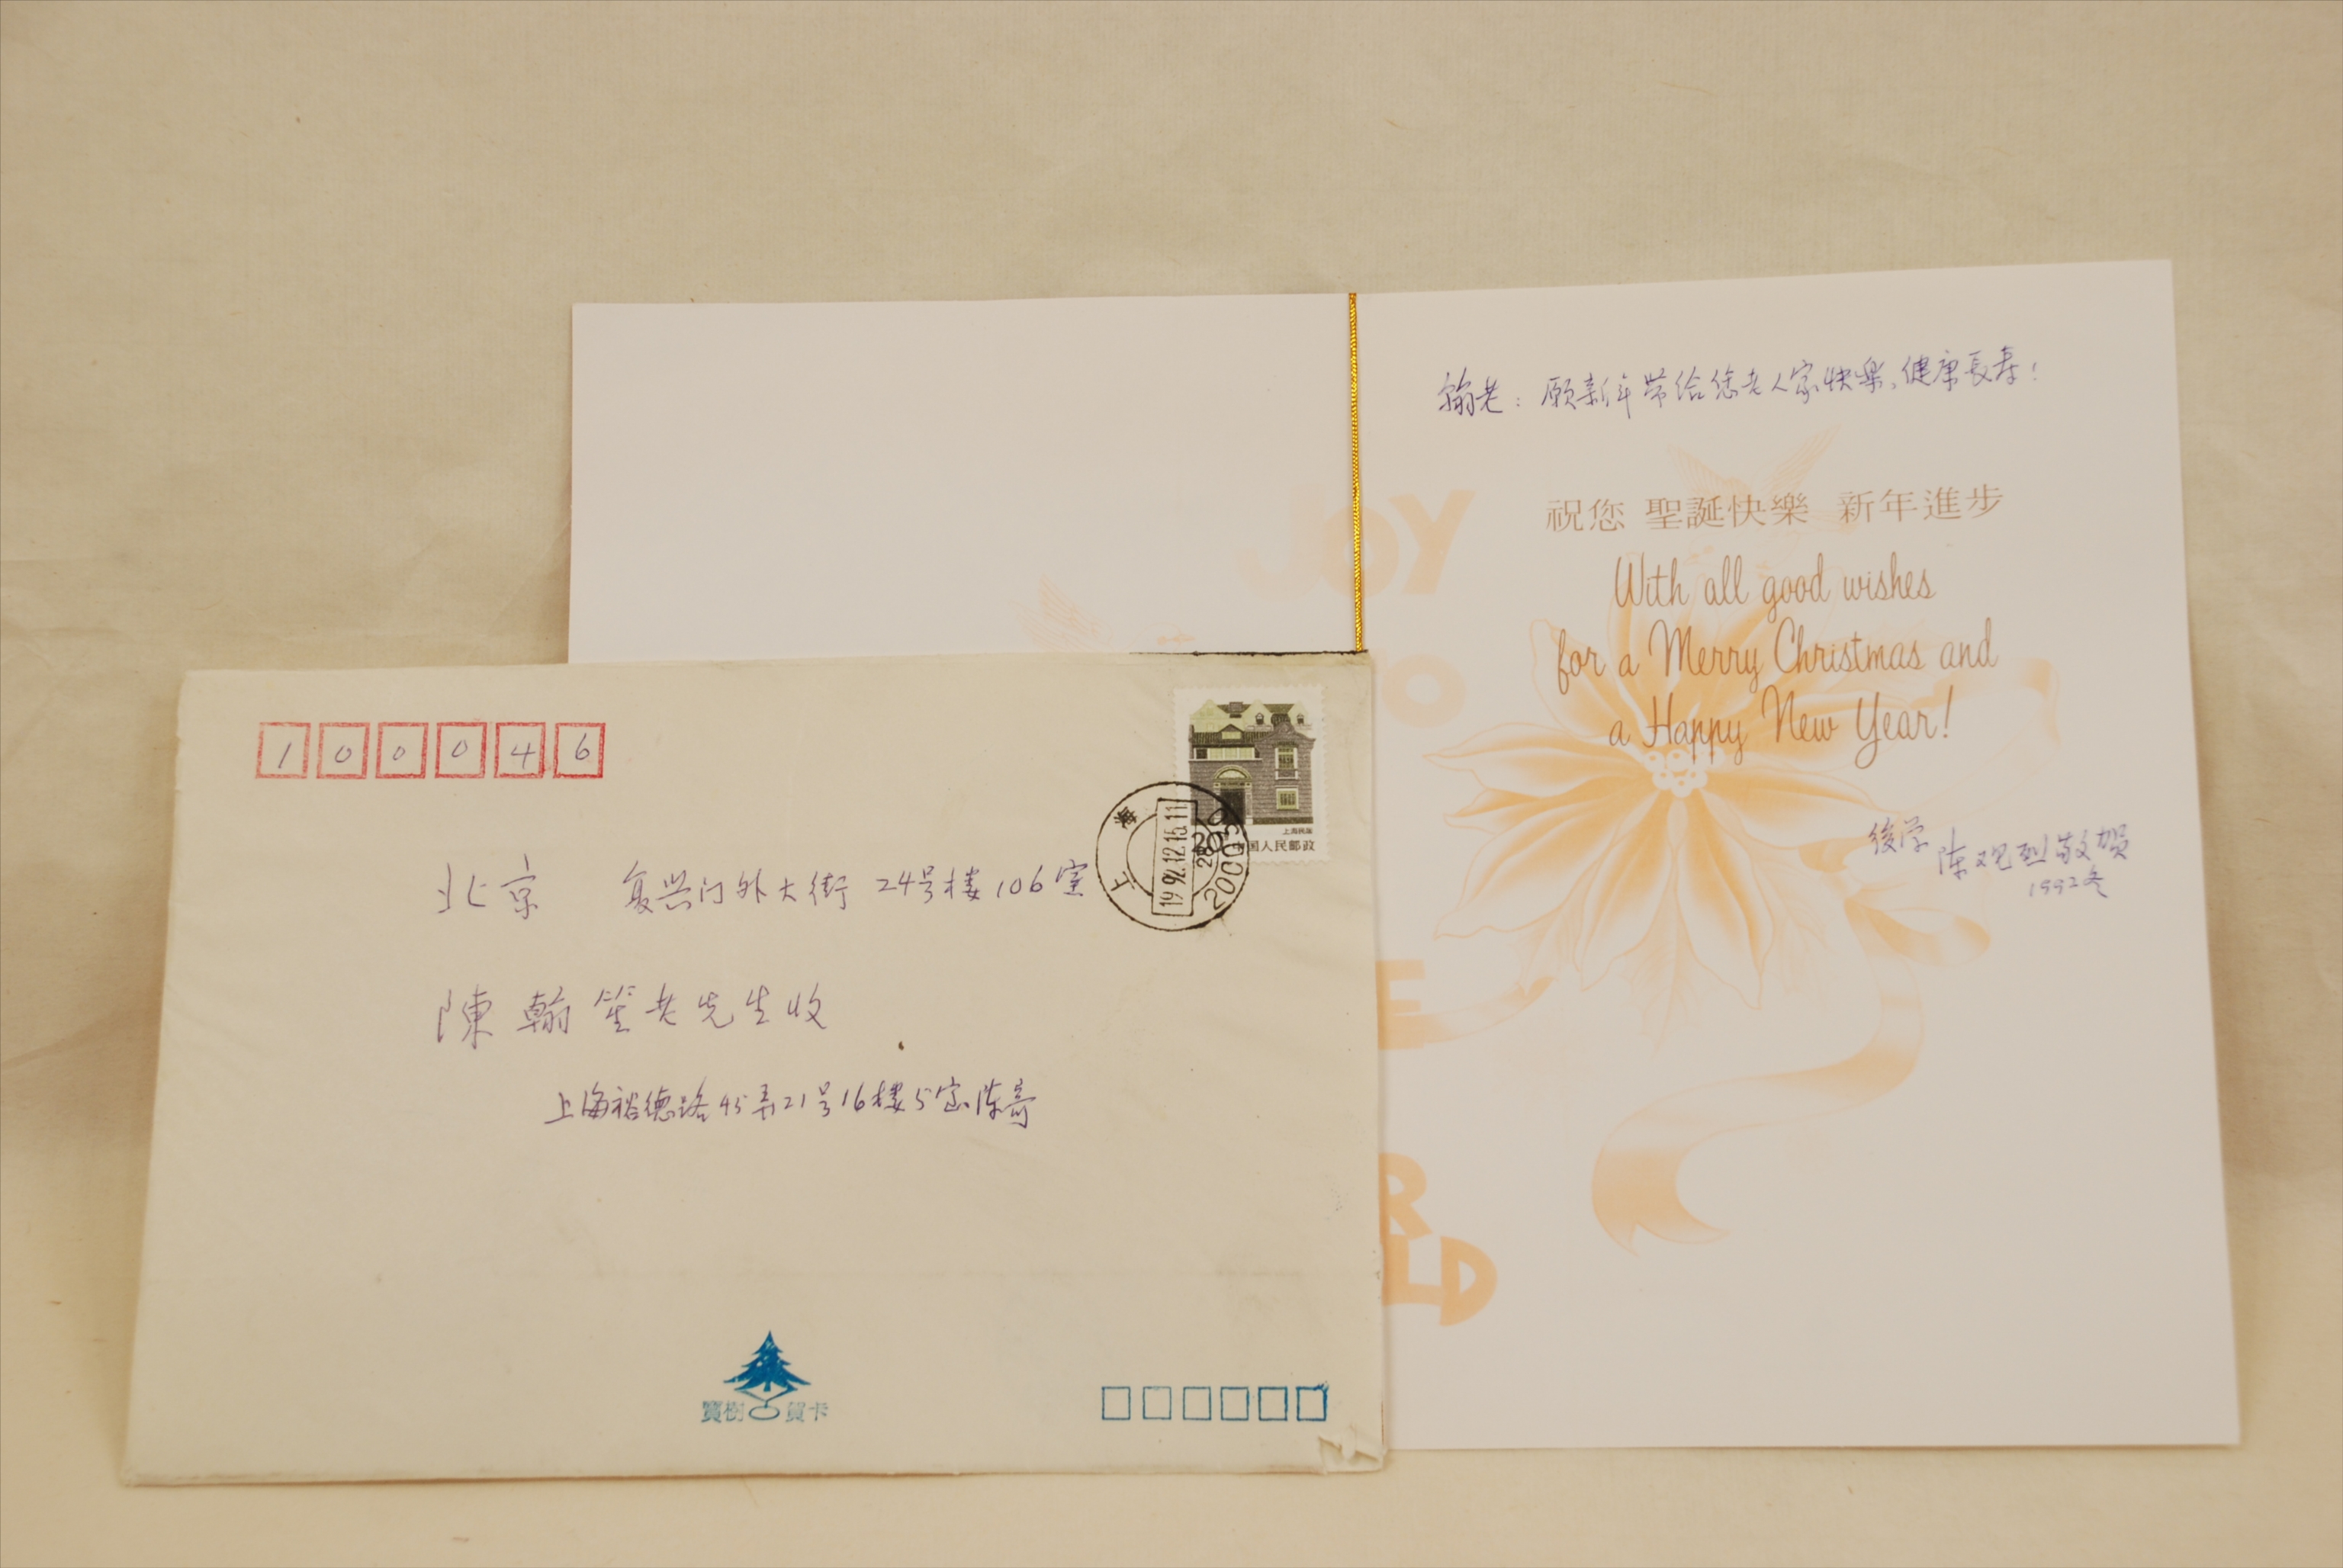 100046
北京 复兴门外大街 24号楼 106室
陳翰笙老先生收
上海裕德路45弄21号16楼5室陈寄
上海民居
20
中国人民邮政
上海
1992.12.15.11
寶樹 賀卡
翰老：願新年带给您老人家快樂、健康長寿！
祝您 聖誕快樂 新年進步
With all good wishes
for a Merry Christmas and
a Happy New Year!
後学 陈观烈敬贺
1992冬
JOY
O
E
R
LD